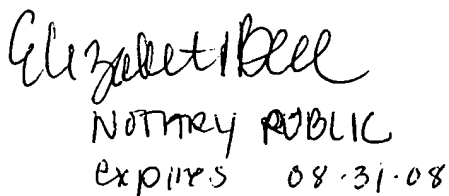 Elizabeth Bell
NOTARY PUBLIC
expires 08.31.08